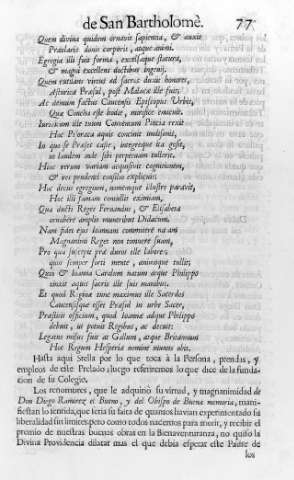 de San Bartholomè. 77
Quem divina quidem ornavit sapientia, & auxit
Præclaris donis corporis, atque animi.
Egregia illi fuit forma, excelsaque statura,
& magni excellens dotibus ingenij.
Quem virtus ad sacros duxit honores,
Asturica Præsul, post Malacæ ille fuit.
Ac demum factus Caucensis Episcopus Urbis,
Quæ Concha est hodie, munere enituit.
Hac aqui concinit
In quo se Præses iuste, integreque ita gessit,
ut laudem inde sibi perpetuam tulerit.
Hinc rerum variam acquisivit cognitionem,
& vir prudenti consilio explicuit.
Hoc decus egregium, nomenque illustre paravit,
Hac illi famam conciliat eximiam,
Qua ducti Reges Fernandus, & Elisabeta
amplis muneribus Didacum.
Nam fidei eius Ioannam committere natam
Magnanimi Reges non timuere suam,
Pro qua suscepit præ duros ille labores,
quos semper forti mente, animoque tulit;
Quin & Ioanna Carolum natum atque Philippo
tinxit aquis sacris ille suis manibus.
Et quod Regina tunc maximus ille Sacerdos
esset Præsul in urbe Sacer,
Præstitit officium, quod Ioanna atque Philippo
debuit, ut potuit Regibus, ac decuit:
Legatus missus fuit ac Gallum, atque Britannum
Hac Regum Hesperiæ nomine munus obit.
Hasta aqui Stella por lo que toca à la Persona, prendas, y
empleos de este Prelado; luego referiremos lo que dice de la funda-
cion de su Colegio.
Los renombres, que le adquiriò su virtud, y magnanimidad de
Don Diego Ramirez el Bueno, y del Obispo de Buena memoria, mani-
fiestan lo sentida, que seria su falta de quantos havian experimentado su
liberalidad sin limites; pero como todos nacemos para morir, y recibir el
premio de nuestras buenas obras en la Bienaventuranza, no quiso la
Divina Providencia dilatar mas el que debia esperar este Padre de
los